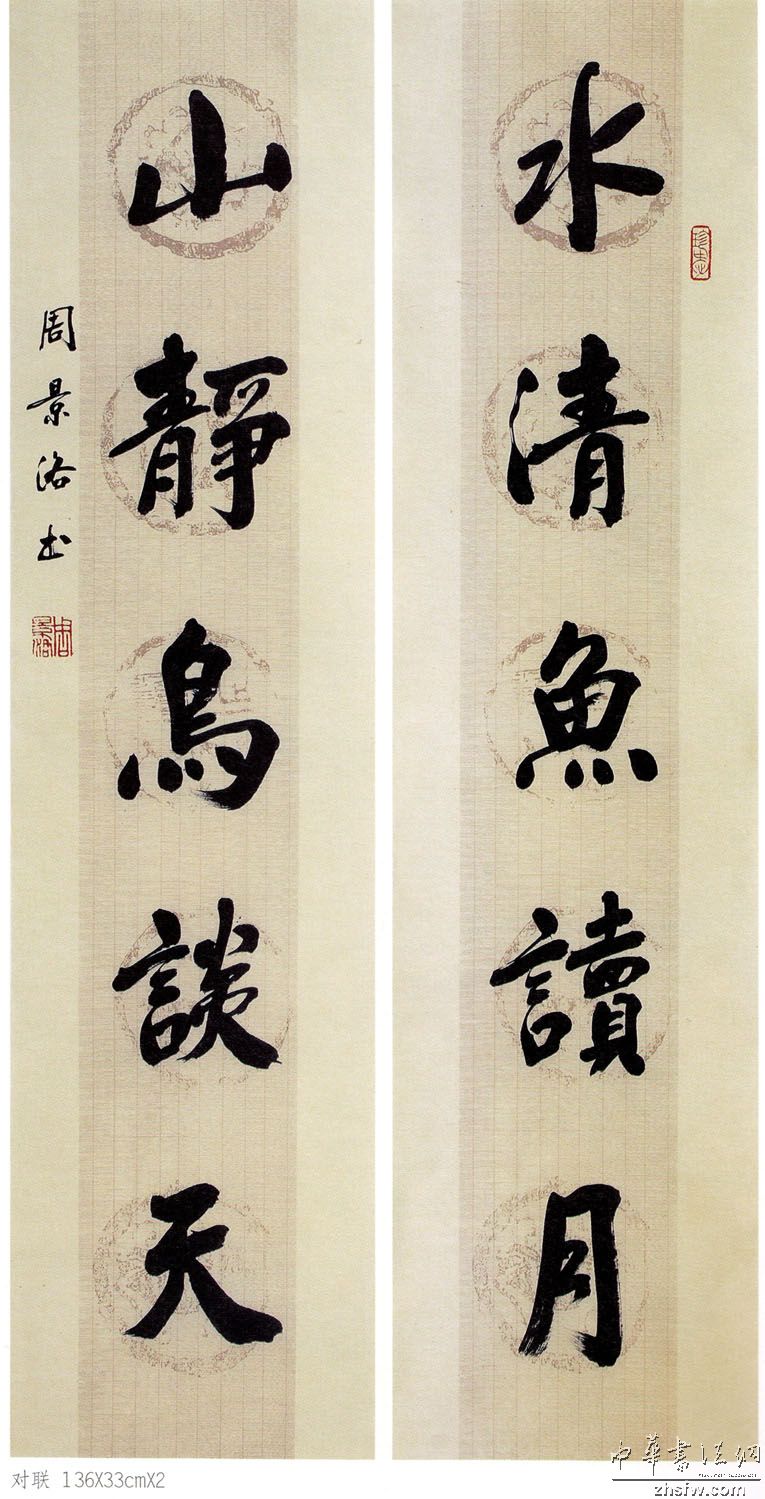 水清魚讀月
山靜鳥談天
周景洛书
对联 136X33cmX2
中华书法网
zhsfw.com